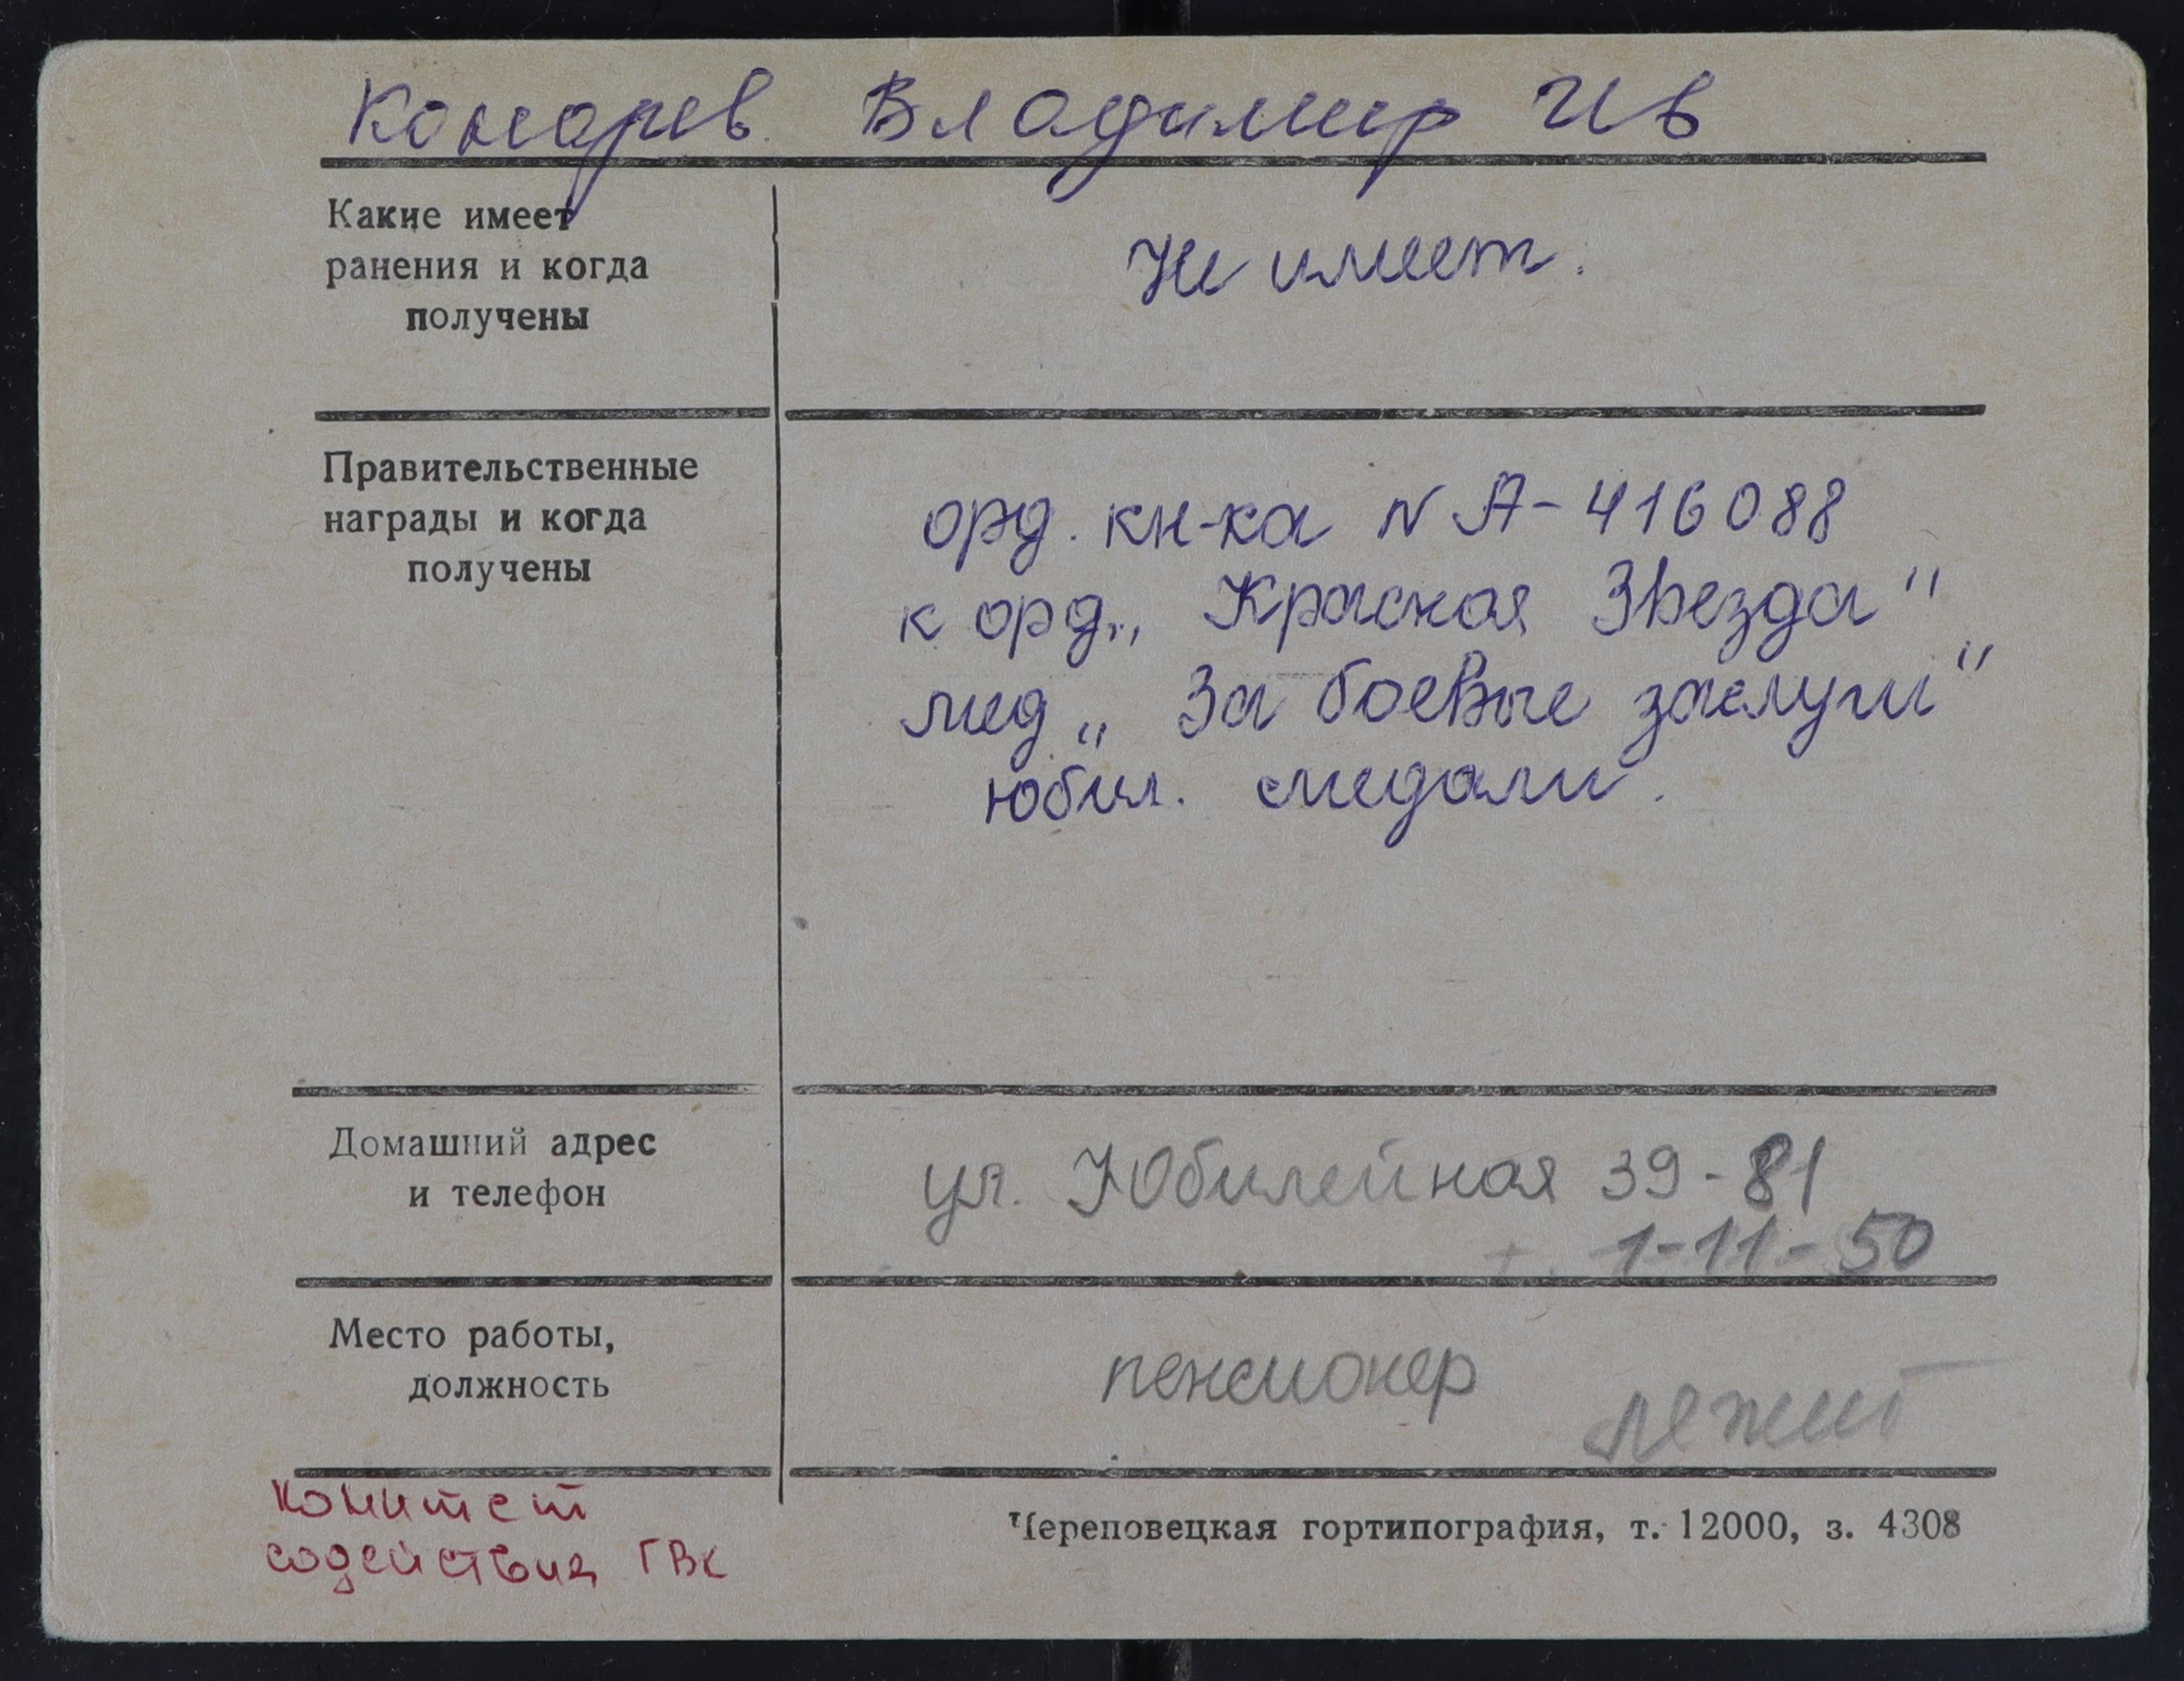 Комарев Владимир Ив
Какие имеет
ранения и когда
получены
Не имеет.
Правительственные
награды и когда
получены
орд. кн-ка N А-416088
к орд. „Красная Звезда"
мед „За боевые заслуги"
юбил. медали.
Домашний адрес
и телефон
ул. Юбилейная 39-81
т. 1-11-50
Место работы,
должность
пенсионер
лежит
комитет
содействия ГВК
Череповецкая гортипография, т. 12000, з. 4308